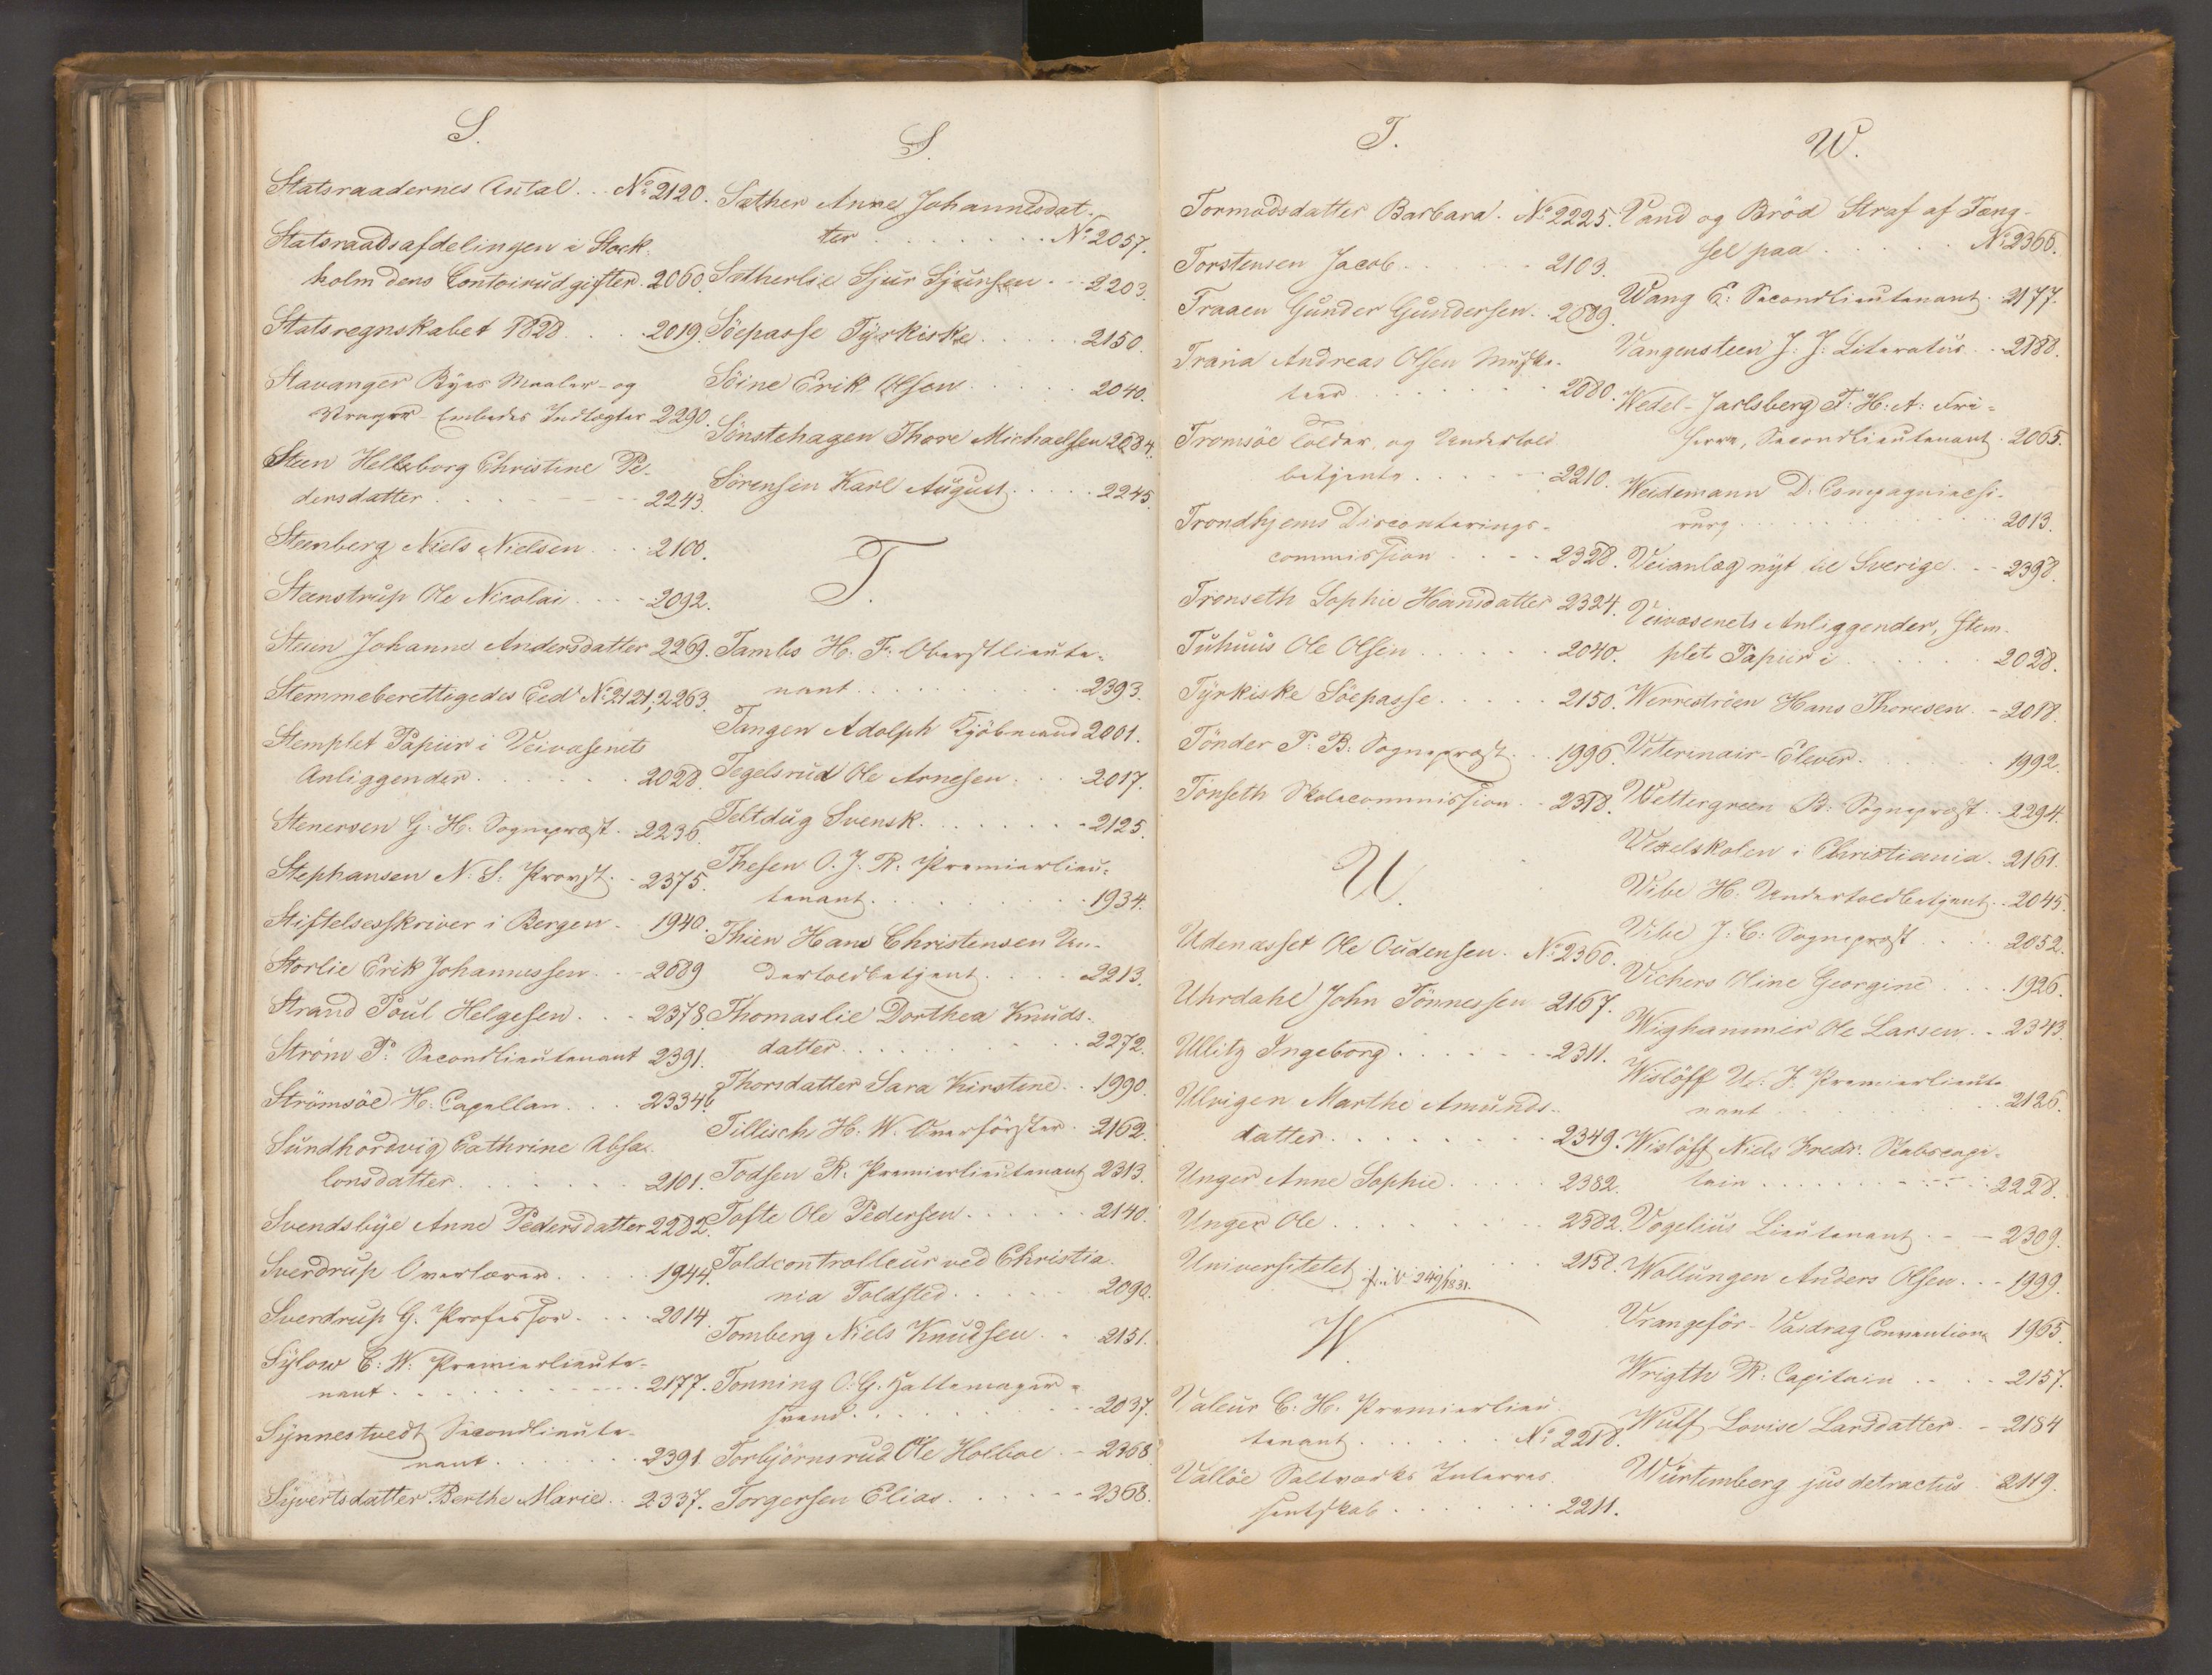 S.
Statsraadernes Antal . . No 2120.
Statsraadsafdelingen i Stock-
holm dens Contoirudgifter. 2060.
Statsregnskabet 1828 . . . 2019.
Stavanger Byes Maaler- og
Vrager-Embedes Indtægter 2290.
Steen Helleborg Christine Pe-
dersdatter . . . . . 2243.
Steenberg Niels Nielsen . . . 2100.
Steenstrup Ole Nicolai . . . 2092.
Steien Johanne Andersdatter 2269.
Stemmeberettigedes Eed No 2121, 2263.
Stemplet Papiir i Veivæsenets
Anliggender . . . . . . 2028.
Stenersen G. H. Sognepræst . 2236.
Stephansen N. S. Provst . . 2375.
Stiftelsesskriver i Bergen . 1940.
Storlie Erik Johannessen . . 2089
Strand Poul Helgesen . . . 2378.
Strøm P. Secondlieutenant 2391.
Strömsöe H. Capellan . . . 2334.
Sundhordvig Cathrine Absa-
lonsdatter . . . . . . 2101.
Svendsbye Anne Pedersdatter 2282.
Sverdrup Overlærer . . . . 1944.
Sverdrup G. Professor . . . 2014.
Sylow C. W. Premierlieute-
nant . . . . . . . . 2177.
Synnestvedt Secondlieute-
nant . . . . . . 2391.
Syvertsdatter Berthe Marie . . 2337.
S.
Sæther Anne Johannesdat-
ter . . . . . . . . No 2057.
Sætherlie Sjur Sjursen . . . 2203.
Söepasse Tyrkiske . . . . . 2150.
Söine Erik Olsen . . . . . 2040.
Sönstehagen Thore Michaelsen 2084.
Sörensen Karl August . . . . 2245.
T.
Tambs H. F. Oberstlieute-
nant . . . . . . . . . 2393.
Tangen Adolph Kjöbmand 2001.
Tegelsrud Ole Arnesen . . . 2017.
Teltdug Svensk . . . . . . . 2125.
Thesen O. J. R. Premierlieu-
tenant . . . . . . . . . 1934.
Thien Hans Christensen Un-
dertoldbetjent . . . . 2213.
Thomaslie Dorthea Knuds-
datter . . . . . . . . . 2272.
Thorsdatter Sara Kirstine . . 1990.
Tillisch H. W. Overförster . 2162.
Todsen R. Premierlieutenant 2313.
Tofte Ole Pedersen . . . . . . 2140.
Toldcontrolleur ved Christia-
nia Toldsted . . . . . . 2090.
Tomberg Niels Knudsen . . 2151.
Tonning O. G. Hattemager-
svend . . . . . . . . . 2037.
Torbjörnsrud Ole Holboe . . 2368.
Torgersen Elias . . . . . . 2368.
T.
Tormodsdatter Barbara . No 2225.
Torstensen Jacob . . . . . . 2103.
Traaen Gunder Gundersen . . 2089.
Trana Andreas Olsen Muske-
teer . . . . . . . . 2080.
Tromsöe Tolder og Undertold
betjente . . . . . . 2210.
Trondhjems Disconterings-
commission . . . . 2328.
Tronseth Sophie Hansdatter 2324.
Tuhuus Ole Olsen . . . . . . 2040.
Tyrkiske Söepasse . . . . . 2150.
Tönder P. B. Sognepræst . . 1996.
Tönseth Skolecommission . . 2318.
U.
Udenasset Ole Oudensen . No 2360.
Uhrdahl John Tönnessen 2167.
Ullitz Ingeborg . . . . . . . 2311.
Ulvigen Marthe Amunds-
datter . . . . . . . . 2349.
Unger Anne Sophie . . . . . 2382.
Unger Ole . . . . . . . . . 2382.
Universitetet . . . . . . . 2158.
No 249/1831.
W.
Valeur C. H. Premierlieu-
tenant . . . . . . No 2218.
Vallöe Saltværks Interes-
sentskab . . . . . . . 2211.
W.
Vand og Bröd Straf af Fæng-
sel paa . . . . . . No 2366.
Wang E. Secondlieutenant . 2177.
Vangensteen J. J. Literatus . . 2188.
Wedel-Jarlsberg F. H. A. Fri-
herre, Secondlieutenant . 2065.
Weidemann D. Compagniechi-
rurg . . . . . . . . . 2013.
Veianlæg nyt til Sverige . . . 2398.
Veivæsenets Anliggender, stem-
plet Papiir i . . . . . . 2028.
Werreströen Hans Thoresen . . 2018.
Veterinair-Elever . . . . . . 1992.
Wettergreen B. Sognepræst . . 2294.
Vexelskolen i Christiania . 2161.
Vibe H. Undertoldbetjent . . 2045.
Vibe J. C. Sognepræst . . . . 2052.
Vichers Oline Georgine . . . . 1926.
Wighammer Ole Larsen . . 2343.
Wislöff U. J. Premierlieute-
nant . . . . . . . . . 2126.
Wislöff Niels Fredr. Stabscapi-
tain . . . . . . . . . 2228.
Vogelius Lieutenant . . . 2309.
Wollungen Anders Olsen . . . 1999.
Vrangför-Vasdrag Convention 1965.
Wrigth R. Capitain . . . . 2157.
Wulf Lovise Larsdatter . . 2184
Würtemberg jus detractus . 2119.